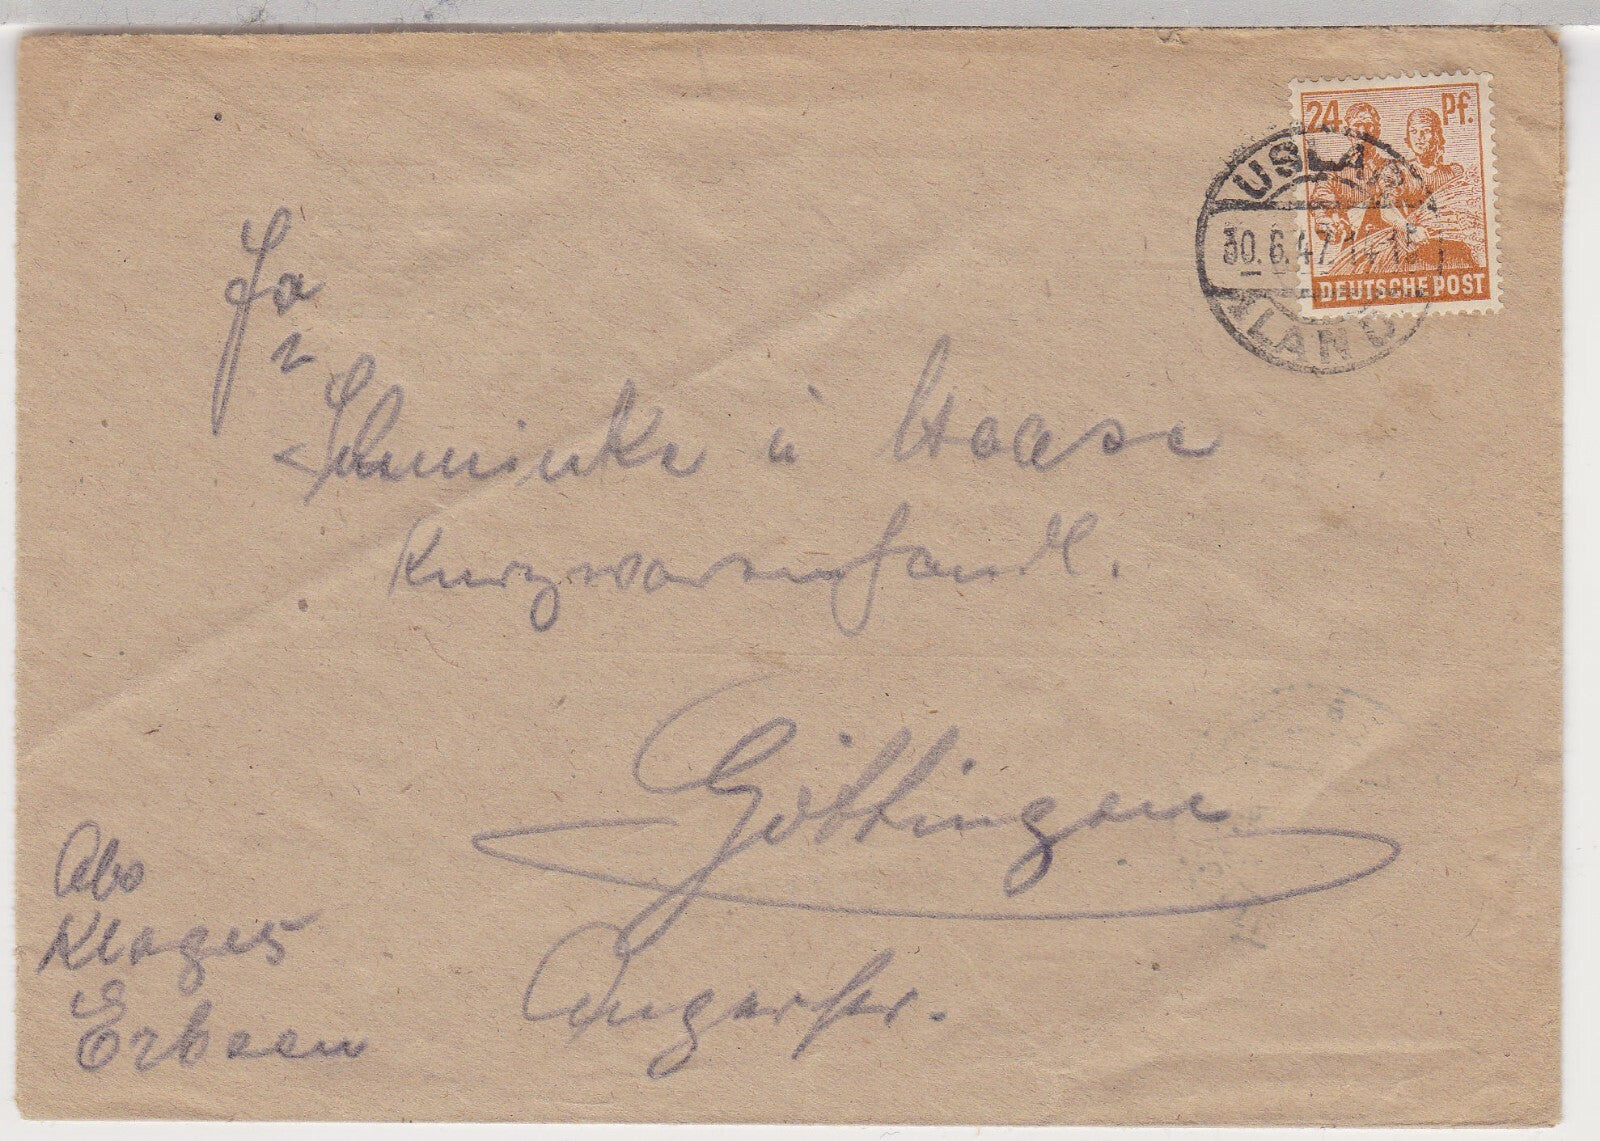 24 Pf.
USLAR
30.6.47.14-15
LAND
DEUTSCHE POST
Fa
Schminke u Haase
Kurzwarenhandl.
Göttingen
Angerstr.
Abs
Klages
Erbsen